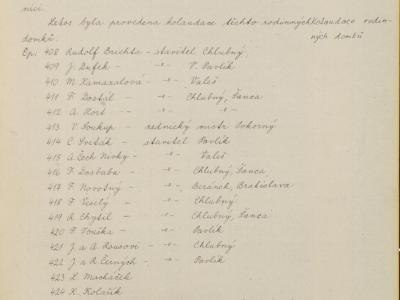 nici.
Letos byla provedena kolaudace těchto rodinných kolaudace rodin-
domků: ných domků
Čp. 408 Rudolf Brichta - stavitel Chlubný
409 J. Dufek - " - V. Pavlík
410 M. Hamazalová - " - Valeš
411 F. Dostál - " - Chlubný, Šanca
412 A. Hort - " - " -
413 V. Soukup - zednický mistr Pokorný
414 C. Sviták - stavitel Pavlík
415 A. Čech Nivky - " - Valeš
416 F. Dosbaba - " - Chlubný, Šanca
417 F. Novotný - " - Beránek, Bratislava
418 F. Veselý - " - Chlubný
419 R. Chytil - " - Chlubný, Šanca
420 F. Fouška - " - Pavlík
421 J. a A. Rousovi - " - Chlubný
422 J. a R. Černých - " - Pavlík
423 L. Macháček
424 K. Kolařík